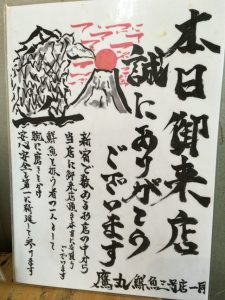 本日御来店
誠にありがとの
ございます
新宿で数ある店の中から
当店に御来店頂き本当にありがとう
ございます
鮮魚を扱う者の一人として
腕に磨きをかけ
安心安全を第一に精進して参ります
鷹丸鮮魚三号店一同